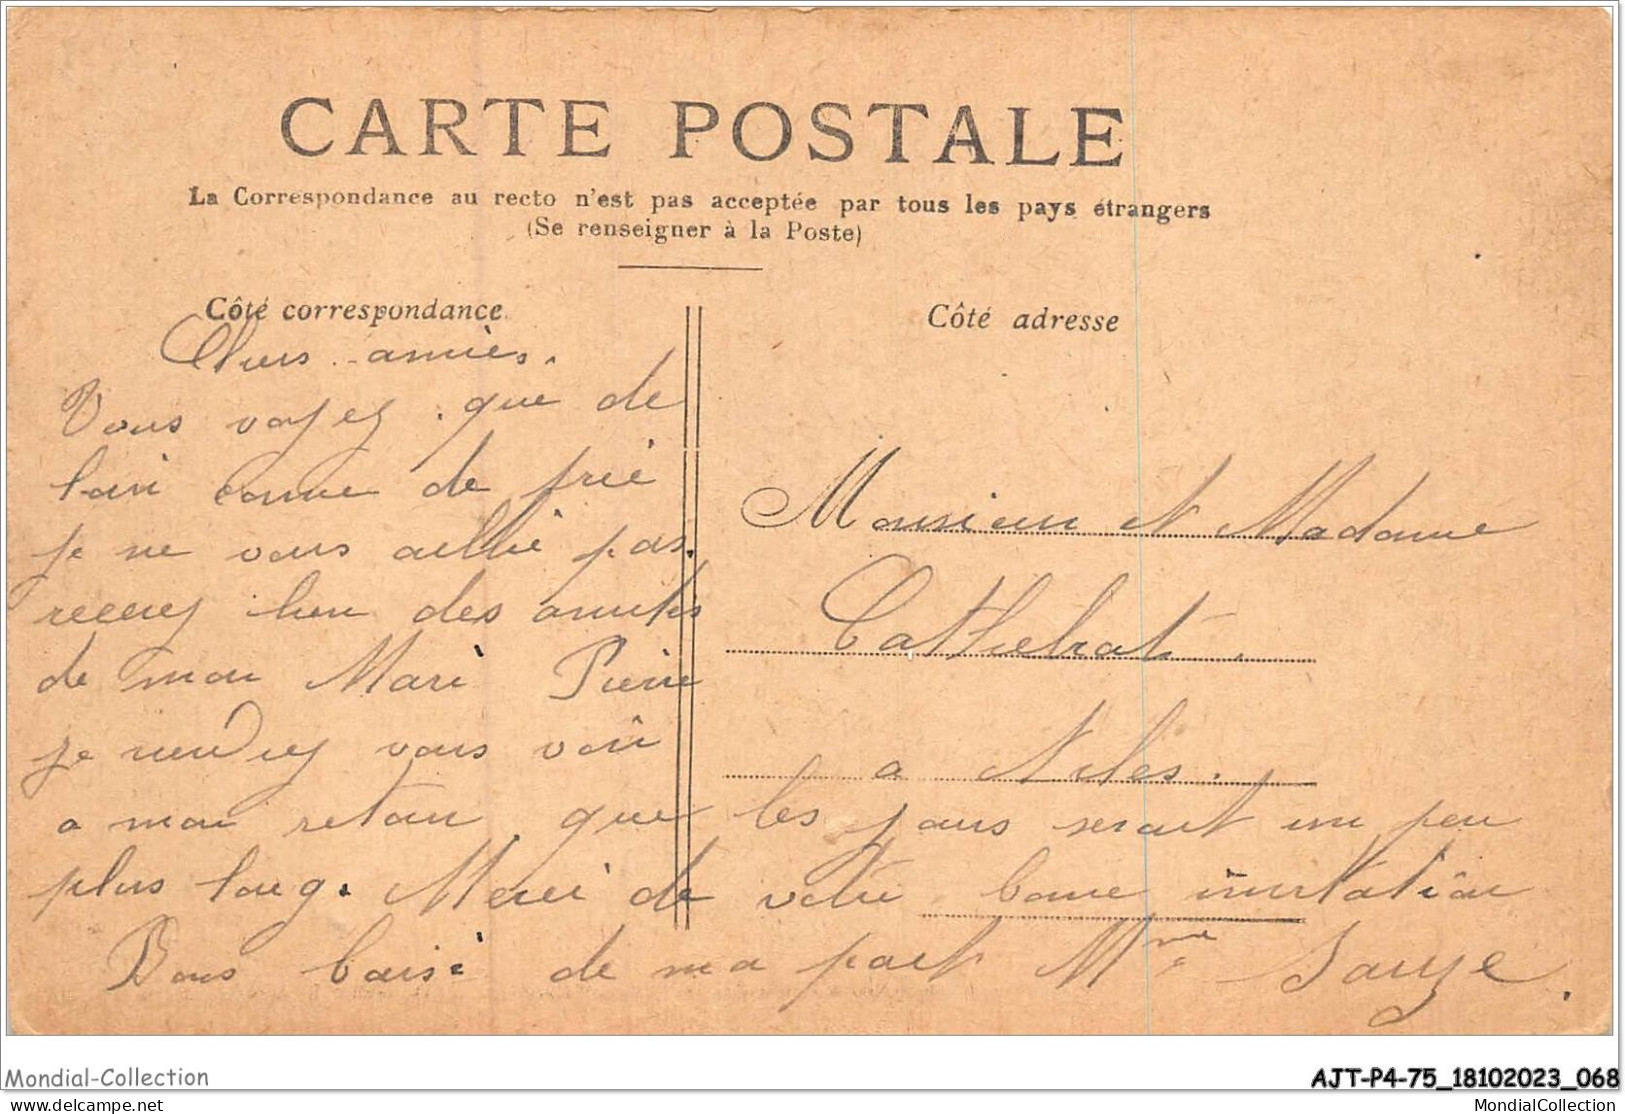 CARTE POSTALE
La Correspondance au recto n'est pas acceptée par tous les pays étrangers
(Se renseigner à la Poste)
Côté correspondance
Côté adresse
Chers amies.
Vous voyez que de
loin comme de
je ne vous oublie pas.
recevez bien des amitiés
de mon Mari Pierre
je viendrez vous voir
a mon retour que les jours serait un peu
plus long. Merci de votre bonne invitation
Bons baisé de ma part Mme
Monsieur et Madame
a Arles.
Mondial-Collection
AJT-P4-75_18102023_068
MondialCollection.com
MondialCollection